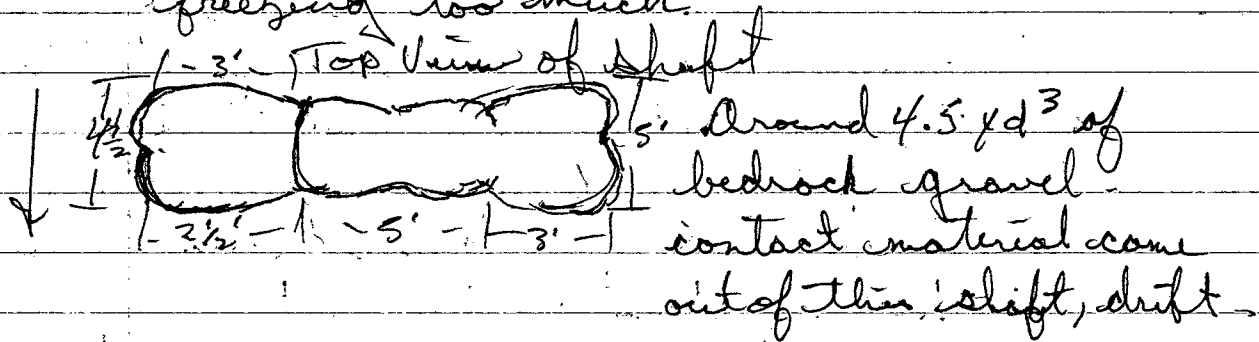 freezing too much.
Top View of shaft
- 3' -
4 1/2'
5'
- 2 1/2' - - 5' - - 3' -
Around 4.5 yd³ of
bedrock gravel
contact material come
out of this shaft, drift